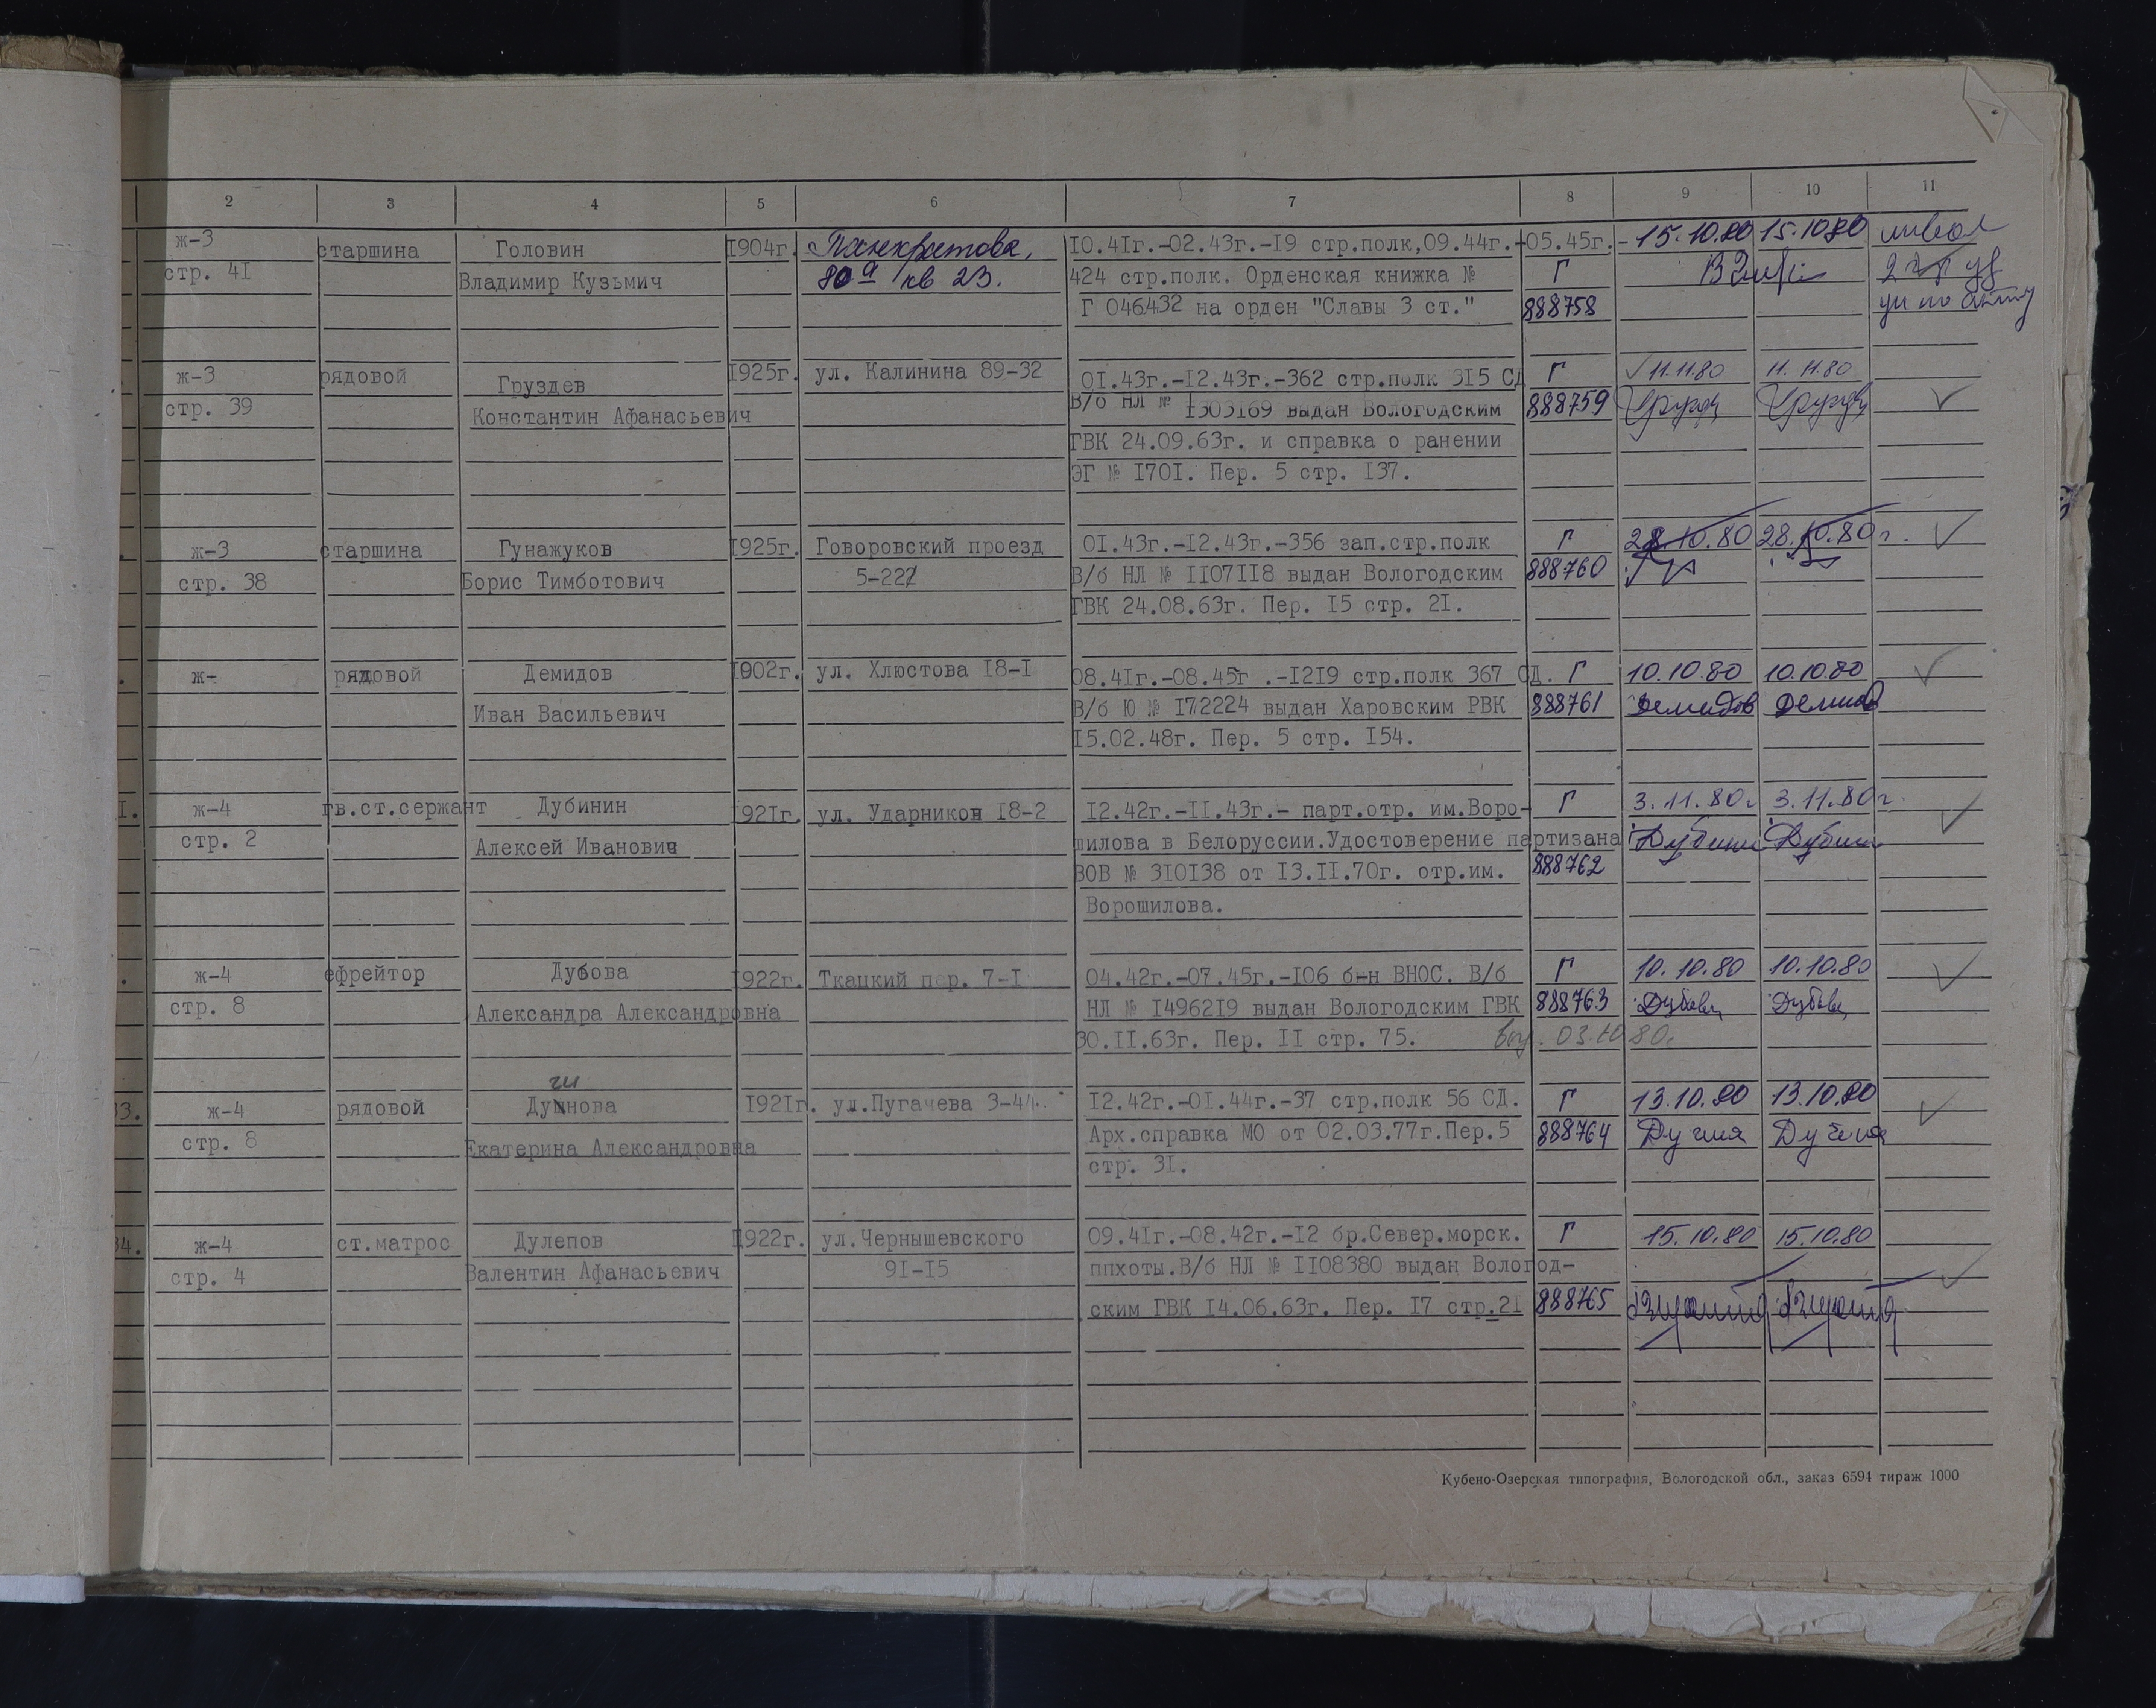 2 3 4 5 6 7 8 9 10 11
ж-3 старшина Головин 1904г. Панкратова, 10.41г.-02.43г.-19 стр.полк,09.44г.-05.45г.- 15.10.80 15.10.80
стр. 41 Владимир Кузьмич 80а кв 23. 424 стр.полк. Орденская книжка № Г
Г 046432 на орден "Славы 3 ст." 888758
ж-3 рядовой Груздев 1925г. ул. Калинина 89-32 01.43г.-12.43г.-362 стр.полк 315 СД Г 11.11.80 11.11.80
стр. 39 Константин Афанасьевич В/б НЛ № 1303169 выдан Вологодским 888759
ГВК 24.09.63г. и справка о ранении
ЭГ № 1701. Пер. 5 стр. 137.
ж-3 старшина Гунажуков 1925г. Говоровский проезд 01.43г.-12.43г.-356 зап.стр.полк Г 28.10.80 28.10.80г.
стр. 38 Борис Тимботович 5-222 В/б НЛ № 1107118 выдан Вологодским 888760
ГВК 24.08.63г. Пер. 15 стр. 21.
ж- рядовой Демидов 1902г. ул. Хлюстова 18-1 08.41г.-08.45г .-1219 стр.полк 367 СД. Г 10.10.80 10.10.80
Иван Васильевич В/б Ю № 172224 выдан Харовским РВК 888761 Демидов Демидов
15.02.48г. Пер. 5 стр. 154.
1. ж-4 гв.ст.сержант Дубинин 1921г. ул. Ударников 18-2 12.42г.-11.43г.- парт.отр. им.Воро- Г 3.11.80г 3.11.80г.
стр. 2 Алексей Иванович шилова в Белоруссии.Удостоверение партизана Дубинин Дубинин
ВОВ № 310138 от 13.11.70г. отр.им. 888762
Ворошилова.
ж-4 ефрейтор Дубова 1922г. Ткацкий пер. 7-1 04.42г.-07.45г.-106 б-н ВНОС. В/б Г 10.10.80 10.10.80
стр. 8 Александра Александровна НЛ № 1496219 выдан Вологодским ГВК 888763 Дубова Дубова
30.11.63г. Пер. 11 стр. 75. 03.10.80г.
33. ж-4 рядовой Душнова 1921г. ул.Пугачева 3-44. 12.42г.-01.44г.-37 стр.полк 56 СД. Г 13.10.80 13.10.80
стр. 8 Екатерина Александровна Арх.справка МО от 02.03.77г.Пер.5 888764
стр. 31.
34. ж-4 ст.матрос Дулепов 1922г. ул.Чернышевского 09.41г.-08.42г.-12 бр.Север.морск. Г 15.10.80 15.10.80
стр. 4 Валентин Афанасьевич 91-15 ппхоты.В/б НЛ № 1108380 выдан Вологод-
ским ГВК 14.06.63г. Пер. 17 стр.21 888765
Кубено-Озерская типография, Вологодской обл., заказ 6594 тираж 1000